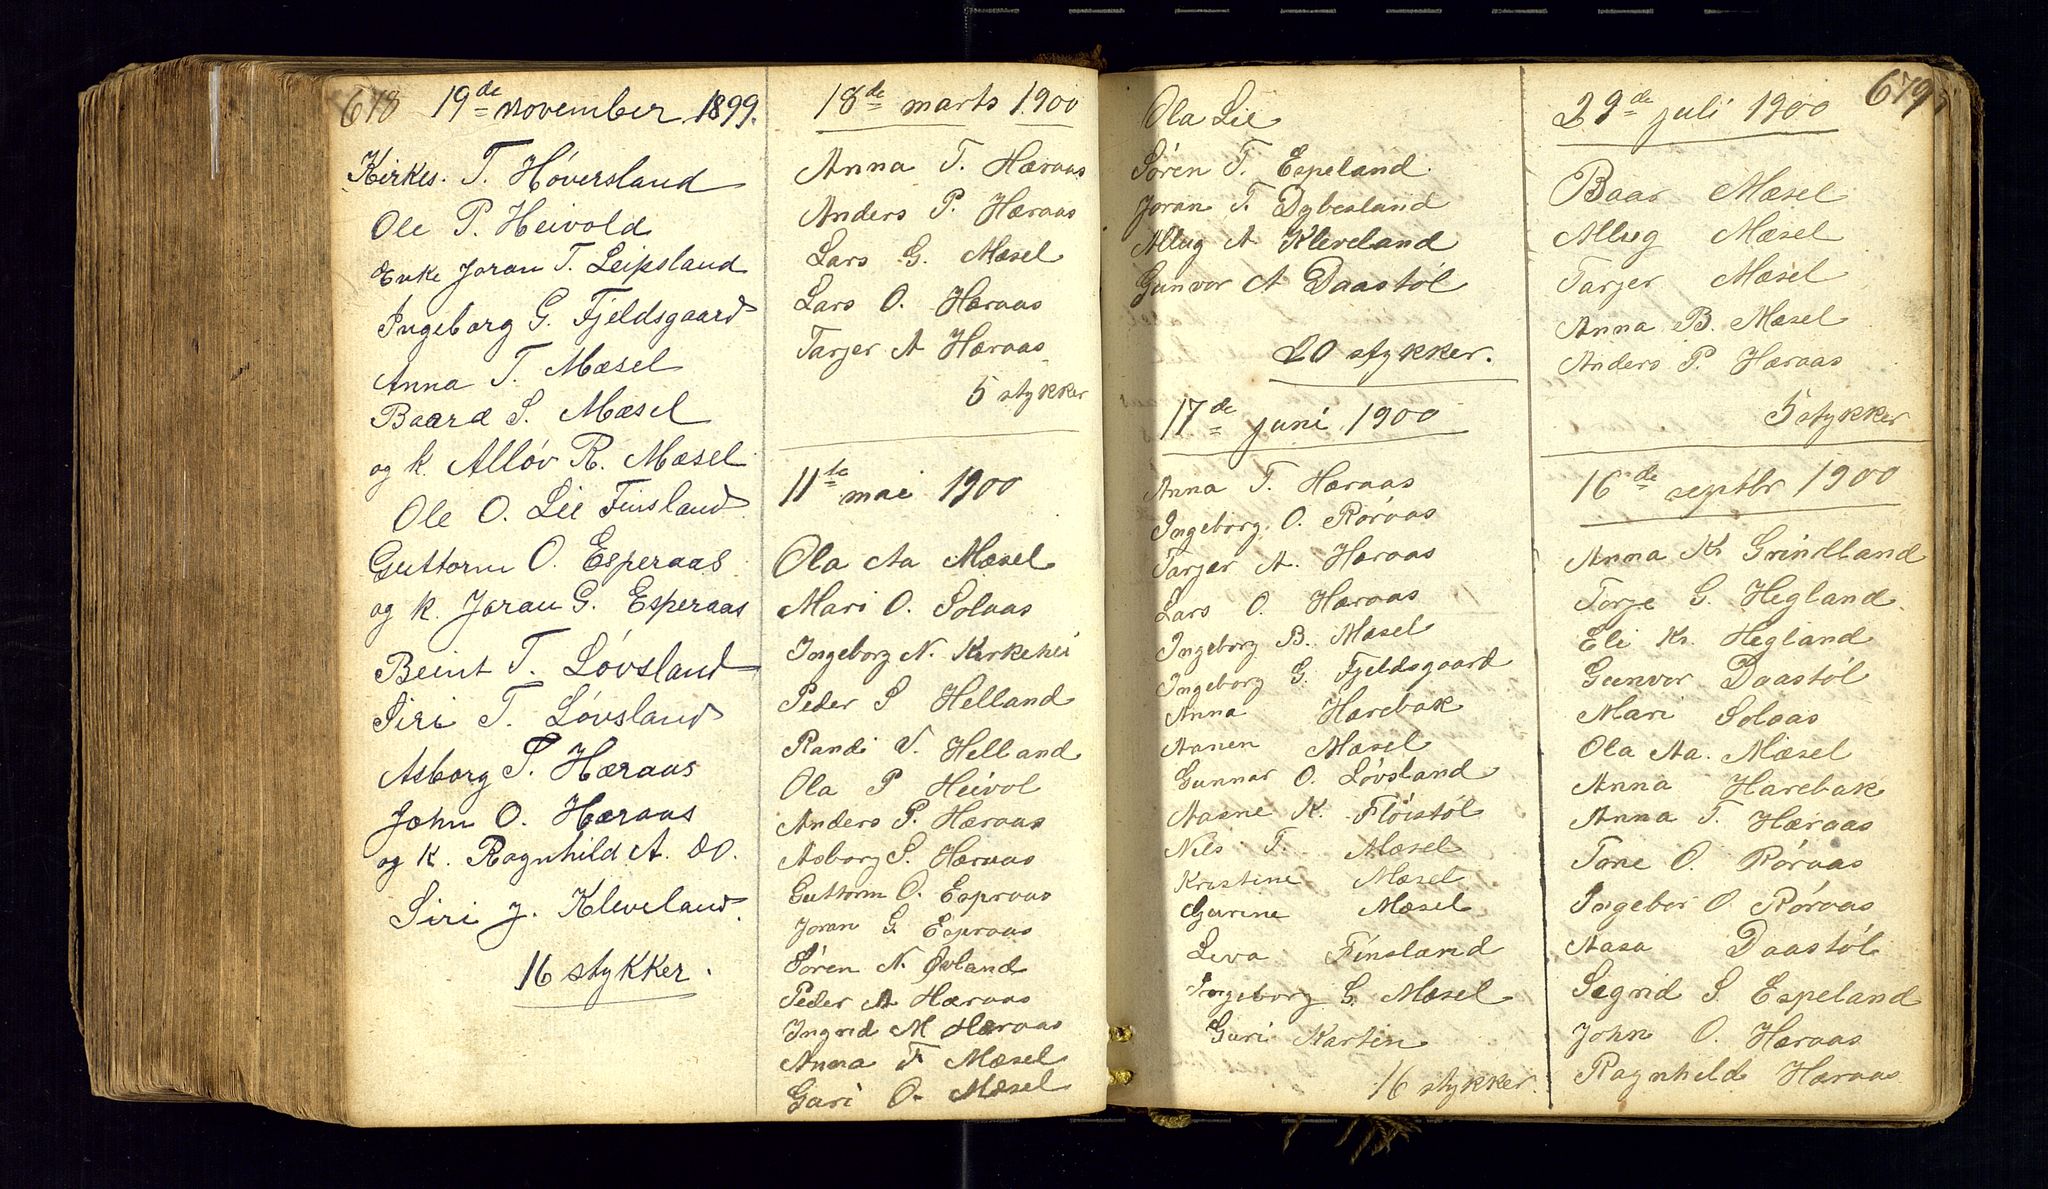 678
19de november 1899.
Kirkes. T. Höversland
Ole P. Heivold
Enke Joran T. Leipsland
Ingeborg G. Fjeldsgaard
Anna T. Mæsel
Baard S. Mæsel
og k. Allöv R. Mæsel
Ole O. Lie Finsland
Guttorm O. Esperaas
og k. Joran G. Esperaas
Beint T. Lövsland
Siri T. Lövsland
Asborg S. Hæraas
John O. Hæraas
og k. Ragnhild A. do.
Siri J. Kleveland.
16 stykker.
18de marts 1900
Anna T. Hæraas
Anders P. Hæraas
Lars G. Mæsel
Lars O. Hæraas
Tarjer A Hæraas
5 stykker
11te mai 1900
Ola Aa Mæsel
Mari O. Solaas
Ingeborg N. Kirkehei
Peder S Helland
Randi T. Helland
Ola P Heivol
Anders P. Hæraas
Asborg S. Hæraas
Guttorm O. Espraas
Joran G. Espraas
Sören N. Øvland
Peder A Hæraas
Ingrid M Hæraas
Anna T Mæsel
Guri O. Mæsel
Ola Lie
Sören T. Espeland.
Joran T. Dybesland
Allug A Kleveland
Gunvor A Daastöl
20 stykker.
17de juni 1900
Anna T. Hæraas
Ingeborg. O. Röraas
Tarjer A. Hæraas
Lars O. Hæraas
Ingeborg B. Mæsel
Ingeborg G. Fjeldsgaard
Anna Harebak
Aanen Mæsel
Gunnar O. Lövsland
Aasne K. Flöistöl
Nils T. Mæsel
Kristine Mæsel
Gurine Mæsel
Leva Finsland
Ingeborg G. Mæsel
Guri Kartin
16 stykker.
679
29de juli 1900
Baar Mæsel
Allug Mæsel
Tarjer Mæsel
Anna B. Mæsel
Anders P. Hæraas
5 stykker
16de septbr 1900
Anna Kr Grindland
Torje G. Hegland.
Eli Kr. Hegland
Gunvor Daastöl
Mari Solaas
Ola Aa. Mæsel
Anna Harebak
Anna T. Hæraas
Tone O. Röraas
Ingebor O. Röraas
Aasa Daastöl
Segrid S. Espeland
John O. Hæraas
Ragnhild Hæraas